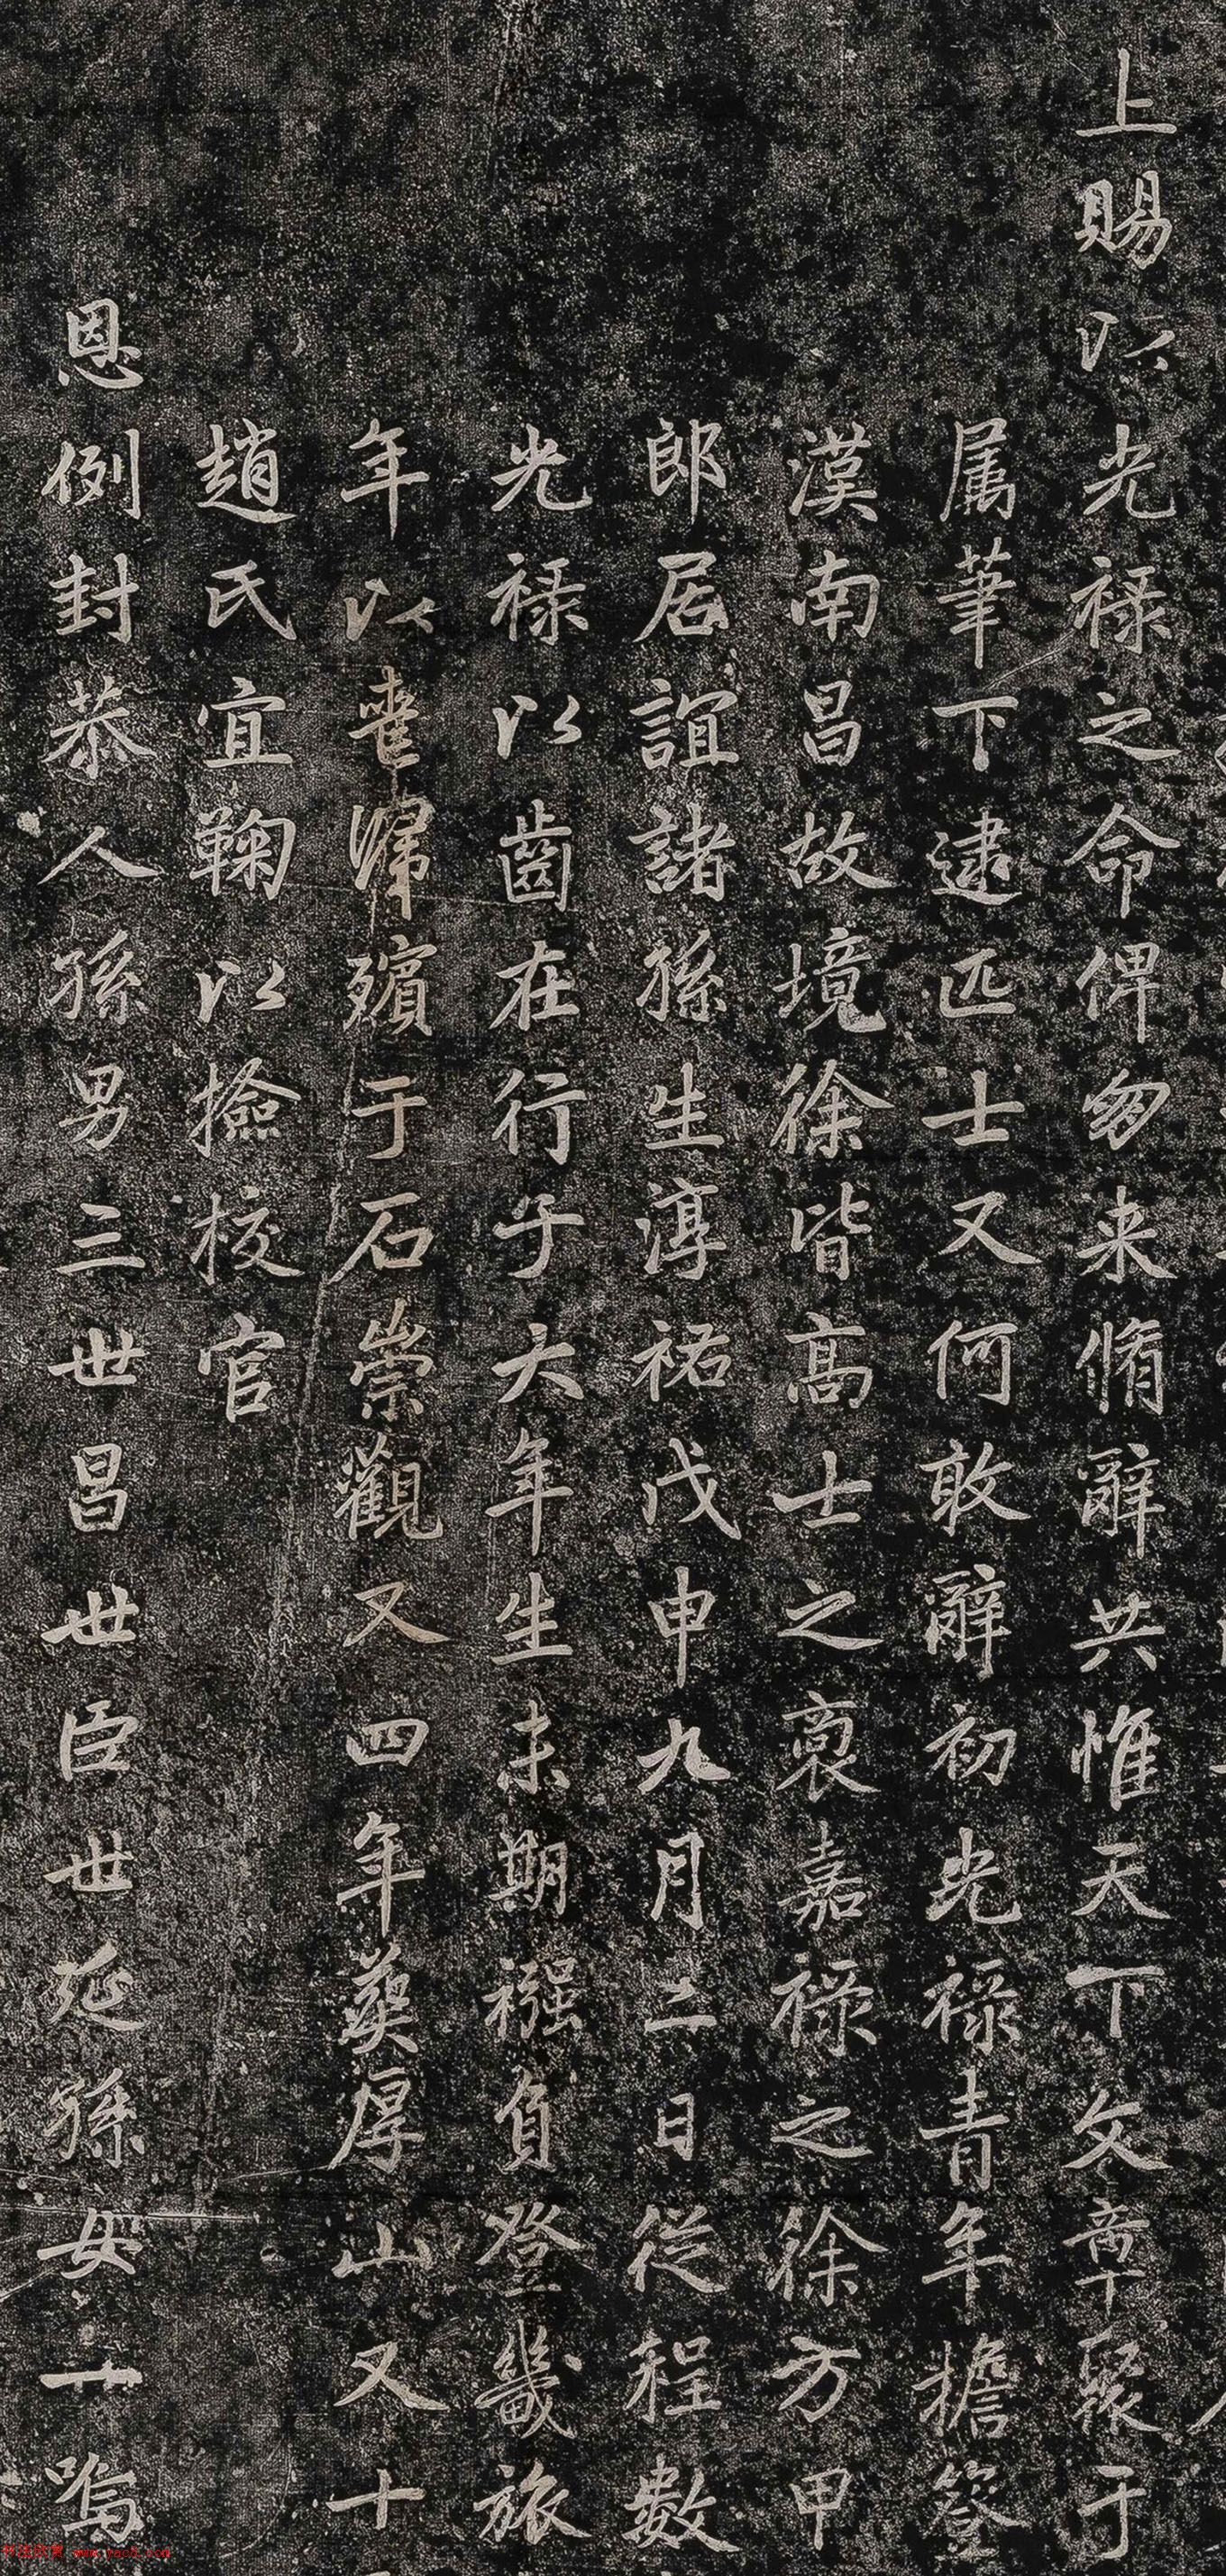 上賜以光祿之命俾匆来脩辭共惟天下文章聚于
属筆下逮匹士又何敢辭初光祿青年擔簦
漢南昌故境徐皆高士之裔嘉祿之徐方甲
郎居誼諸孫生淳祐戊申九月二日從程數
光祿以齒在行于大年生未期襁負登畿旅
年以喪歸殯于石崇觀又四年葬厚山又十
趙氏宜鞠以撿校官
恩例封恭人孫男三世昌世臣世延孫女一
www.yac8.com